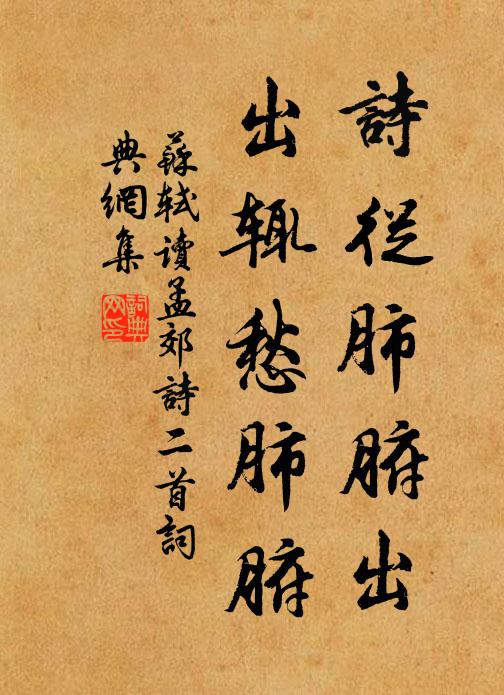 詩從肺腑出
出輒愁肺腑
蘇軾讀孟郊詩二首詞
典網集
詞典網印